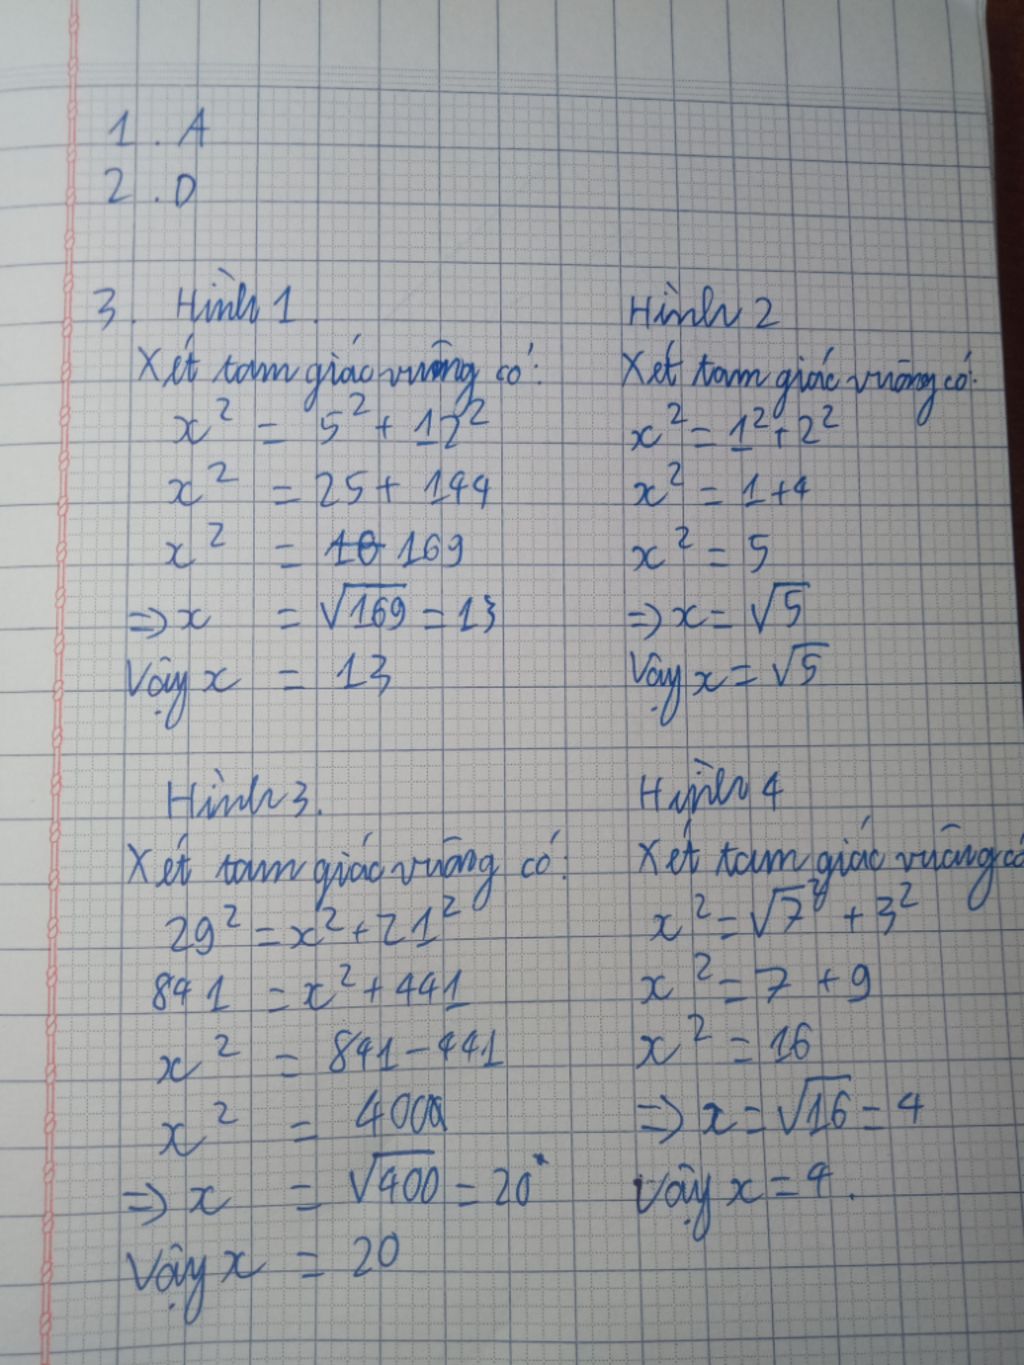 1. A
2. D
3. Hình 1.
Xét tam giác vuông có:
x² = 5² + 12²
x² = 25 + 144
x² = 169
=> x = √169 = 13
Vậy x = 13
Hình 2
Xét tam giác vuông có:
x² = 1² + 2²
x² = 1 + 4
x² = 5
=> x = √5
Vậy x = √5
Hình 3.
Xét tam giác vuông có:
29² = x² + 21²
841 = x² + 441
x² = 841 - 441
x² = 400
=> x = √400 = 20
Vậy x = 20
Hình 4
Xét tam giác vuông có
x² = √7² + 3²
x² = 7 + 9
x² = 16
=> x = √16 = 4
Vậy x = 4.